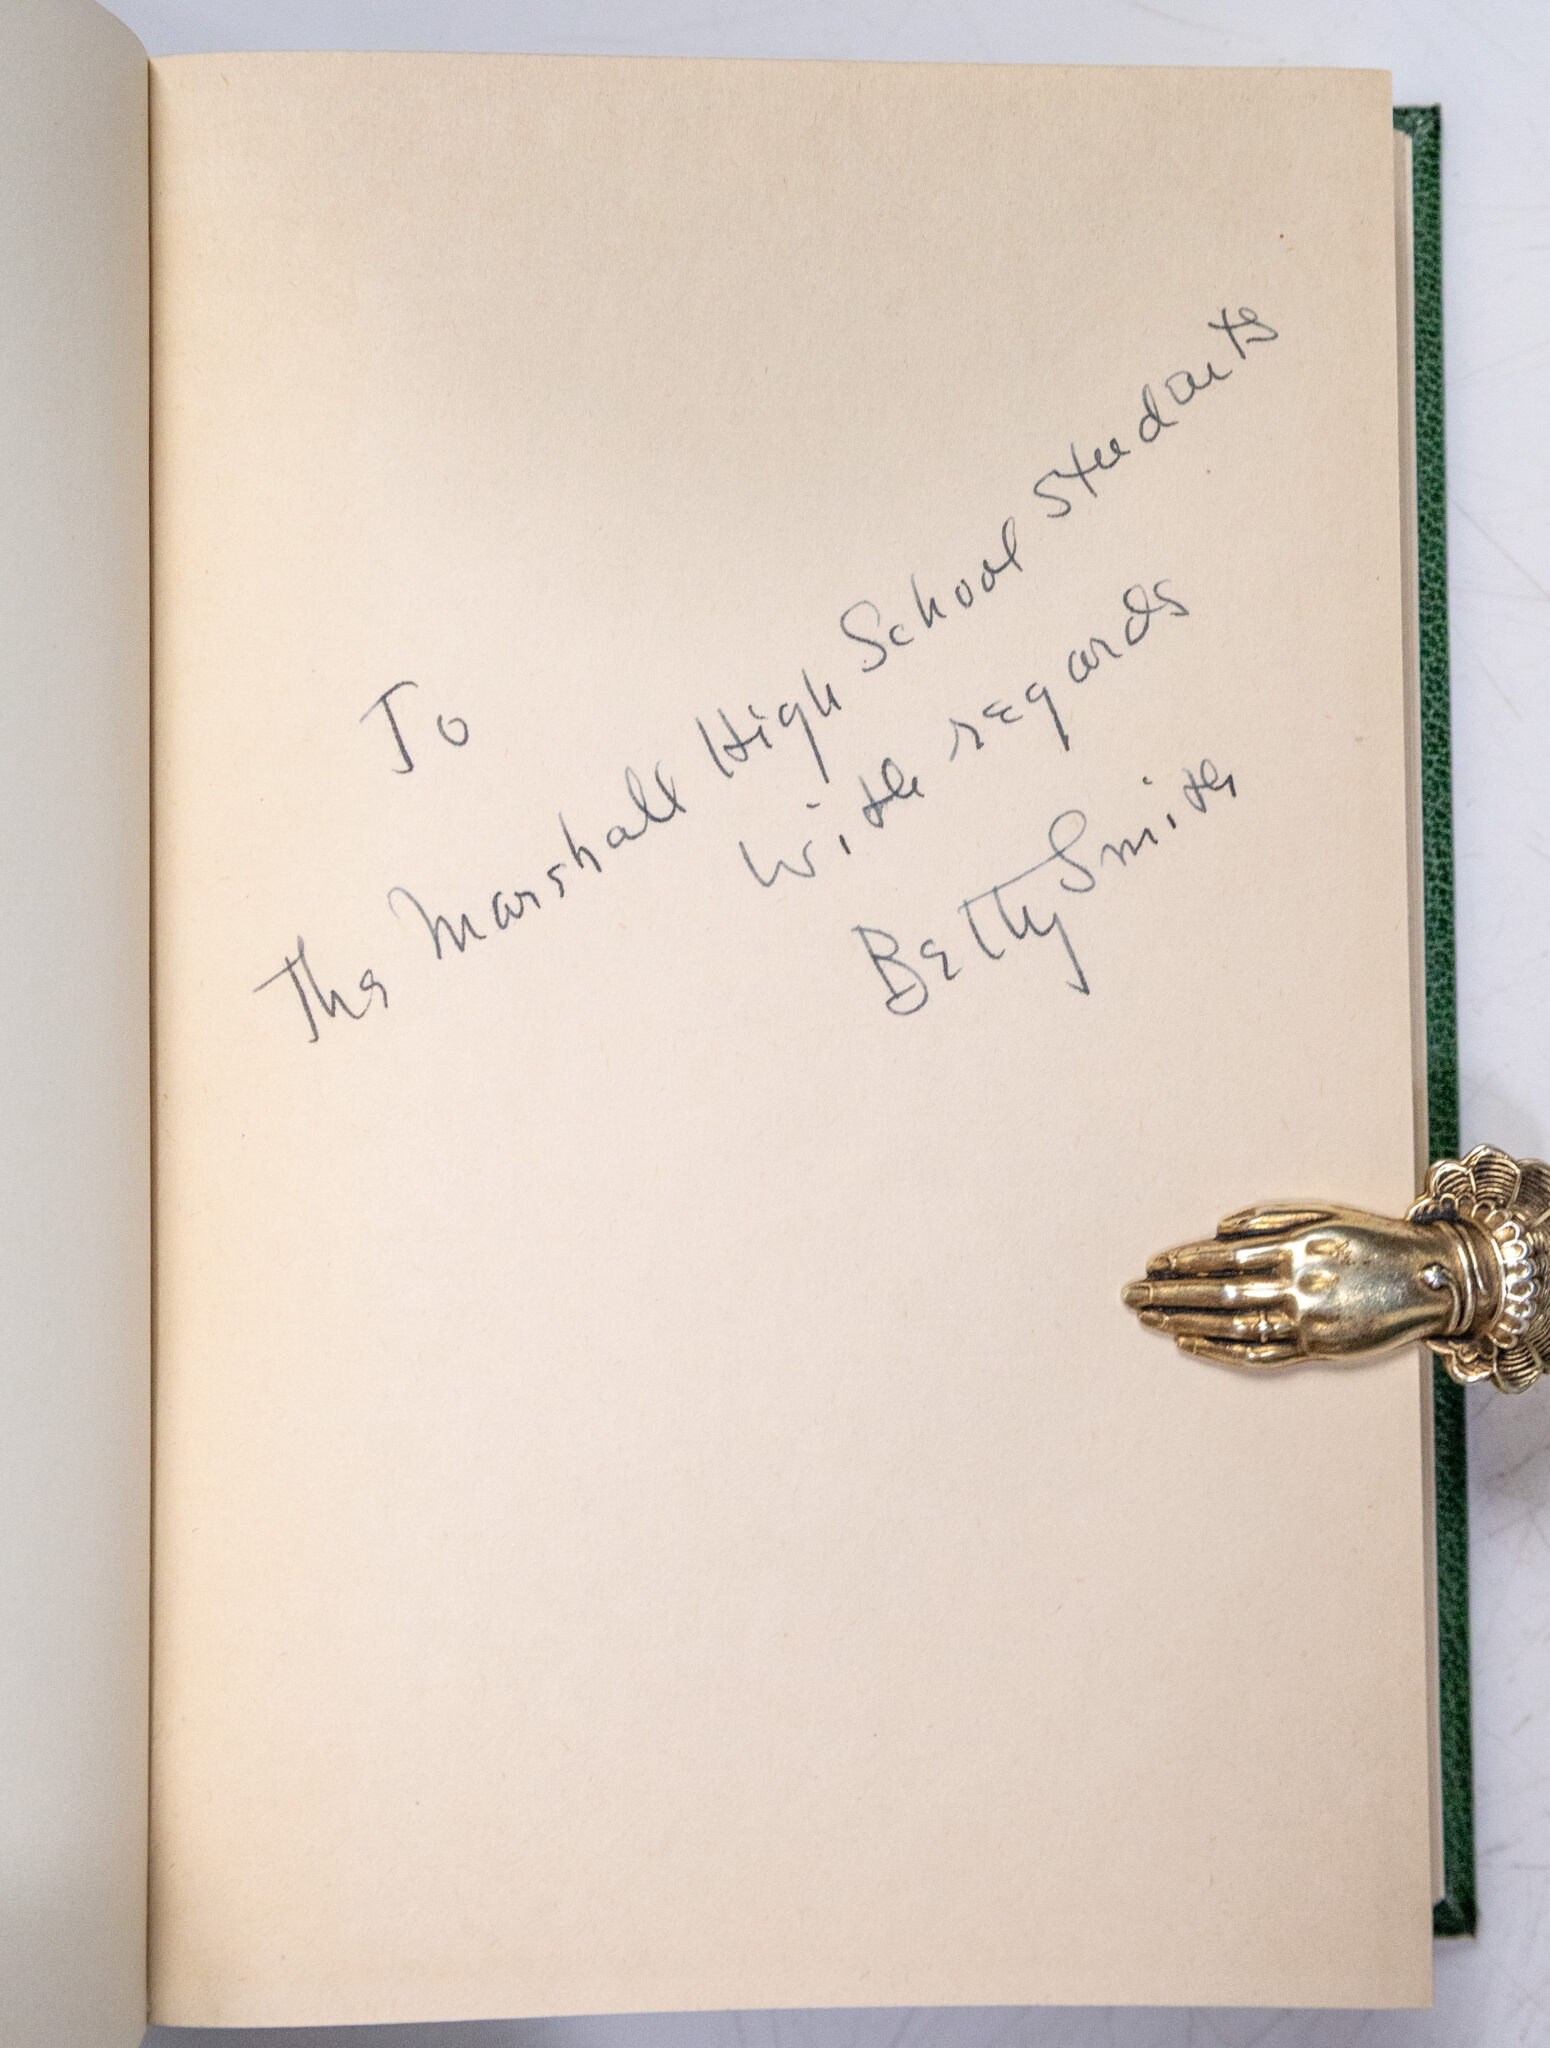 To
The Marshall High School Students
With regards
Betty Smith